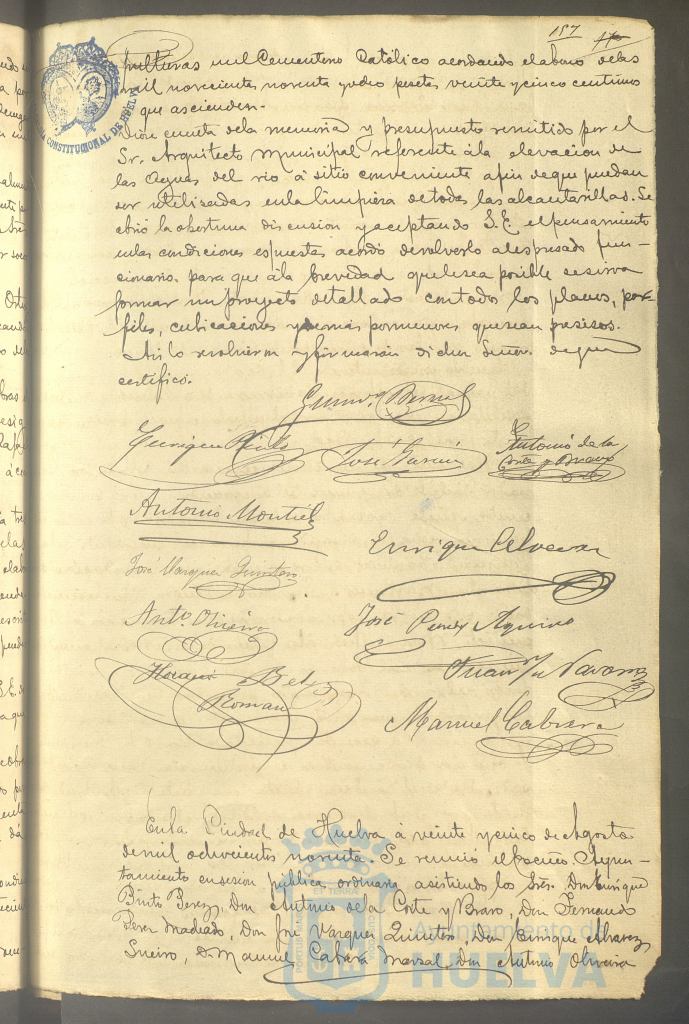 157
pulturas en el Cementerio Católico acordando el abono de las
mil novecientas noventa y dos pesetas veinte y cinco centimos
que ascienden.-
Dióse cuenta de la memoria y presupuesto remitido por el
Sr. Arquitecto Municipal referente á la elevacion de
las Aguas del rio á sitio conveniente a fin de que puedan
ser utilizadas en la limpieza de todas las alcantarillas. Se
abrió la oportuna discusion y aceptando S.E. el pensamiento
en las condiciones espuestas acordó devolverlo al espresado fun-
cionario para que á la brevedad que le sea posible se sirva
formar un proyecto detallado con todos los planos, per-
files, cubicaciones y demas pormenores que sean precisos.
Asi lo resolvieron y firmarán dichos Señores de que
certifico.
CONSTITUCIONAL DE HUELVA
José García
Antonio de la
Corte y Bravo
Antonio Montiel
Enrique
José Vazquez Quintero
Ant.º Oliveira
José Perez Aquino
Juan Navarro
Horacio Bel
Roman
Manuel Cabrera
En la Ciudad de Huelva á veinte y cinco de Agosto
de mil ochocientos noventa. Se reunió el Excmo Ayun-
tamiento en sesion pública ordinaria asistiendo los Sres. Don Enrique
Brito Perez, Don Antonio de la Corte y Bravo, Don Fernando
Perez Machado, Don José Vazquez Quintero, Don Enrique Alvarez
Sueiro, D. Manuel Cabrera Marsal, Don Antonio Oliveira
Ayuntamiento de
HUELVA